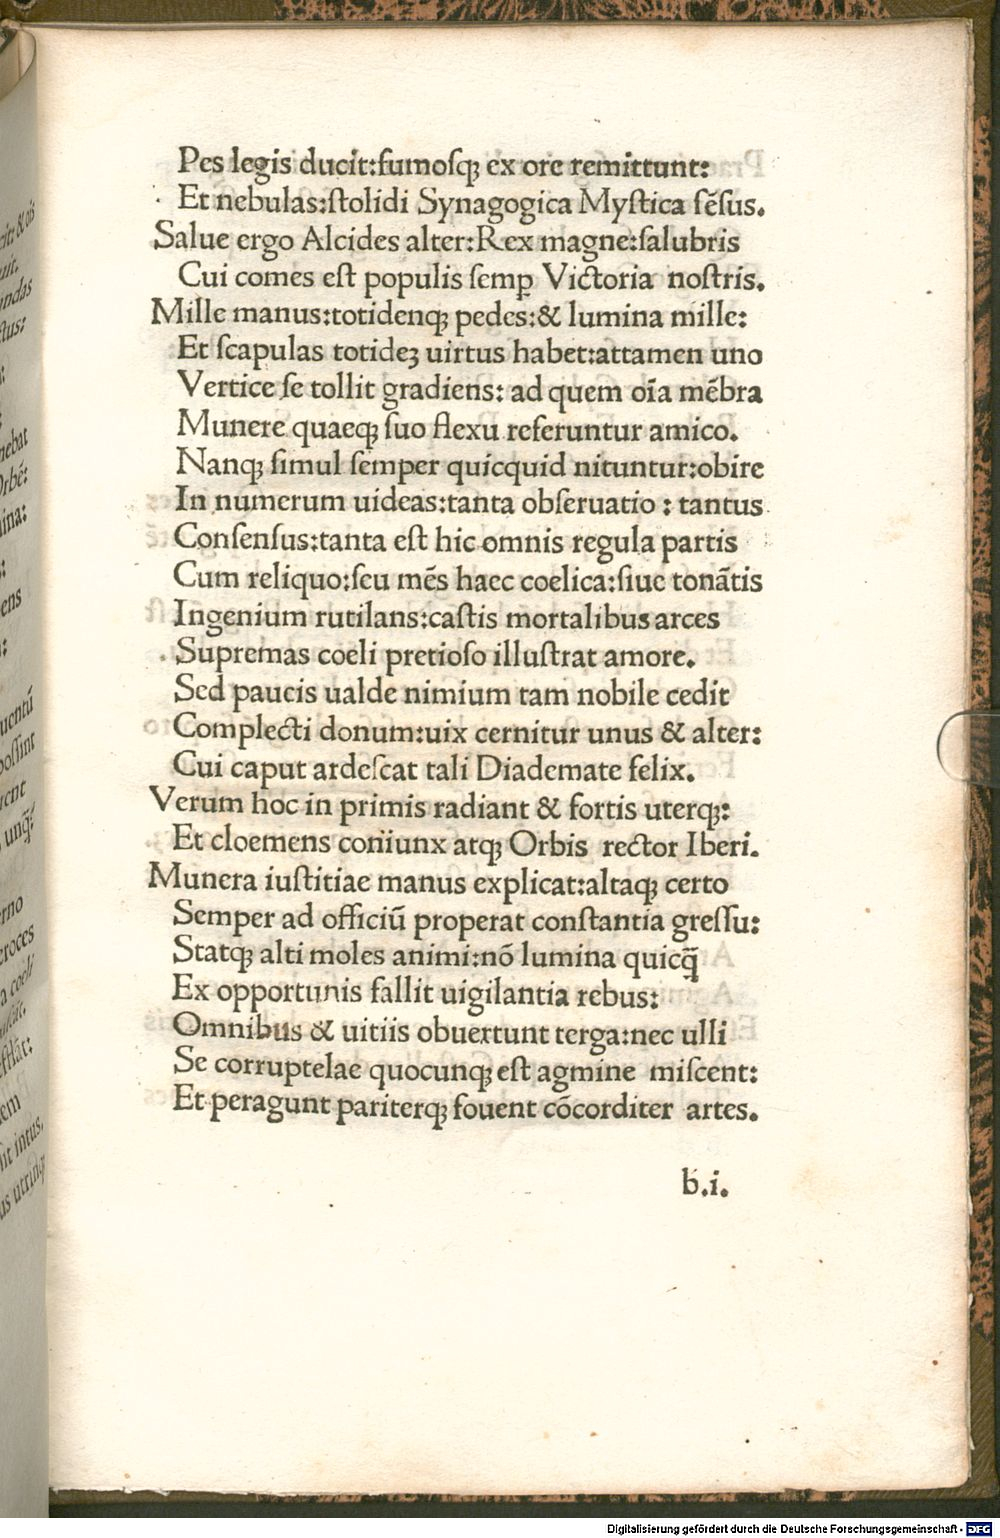 Pes legis ducit:fumoſqꝫ ex ore remittunt:
Et nebulas:ſtolidi Synagogica Myſtica ſēſus.
Salue ergo Alcides alter:Rex magne:ſalubris
Cui comes eſt populis ſemꝑ Victoria noſtris.
Mille manus:totidenqꝫ pedes:& lumina mille:
Et ſcapulas totideꝫ uirtus habet:attamen uno
Vertice ſe tollit gradiens: ad quem oīa mēbra
Munere quaeqꝫ ſuo flexu referuntur amico.
Nanqꝫ ſimul ſemper quicquid nituntur:obire
In numerum uideas:tanta obſeruatio : tantus
Conſenſus:tanta eſt hic omnis regula partis
Cum reliquo:ſeu mēs haec coelica:ſiue tonātis
Ingenium rutilans:caſtis mortalibus arces
Supremas coeli pretioſo illuſtrat amore.
Sed paucis ualde nimium tam nobile cedit
Complecti donum:uix cernitur unus & alter:
Cui caput ardeſcat tali Diademate felix.
Verum hoc in primis radiant & fortis uterqꝫ:
Et cloemens coniunx atqꝫ Orbis rector Iberi.
Munera iuſtitiae manus explicat:altaqꝫ certo
Semper ad officiū properat conſtantia greſſu:
Statqꝫ alti moles animi:nō lumina quicq̄
Ex opportunis fallit uigilantia rebus:
Omnibus & uitiis obuertunt terga:nec ulli
Se corruptelae quocunqꝫ eſt agmine miſcent:
Et peragunt pariterqꝫ fouent cōcorditer artes.
b.i.
Digitalisierung gefördert durch die Deutsche Forschungsgemeinschaft - DFG